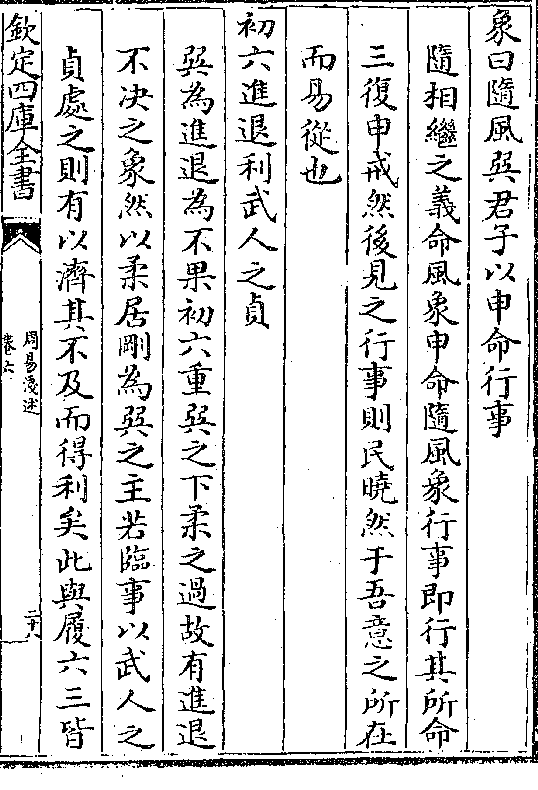 象曰隨風巽君子以申命行事
隨相繼之義命風象申命隨風象行事即行其所命
三復申戒然後見之行事則民曉然于吾意之所在
而易從也
初六進退利武人之貞
巽為進退為不果初六重巽之下柔之過故有進退
不决之象然以柔居剛為巽之主若臨事以武人之
貞處之則有以濟其不及而得利矣此與履六三皆
欽定四庫全書
周易淺述
卷六
二十八